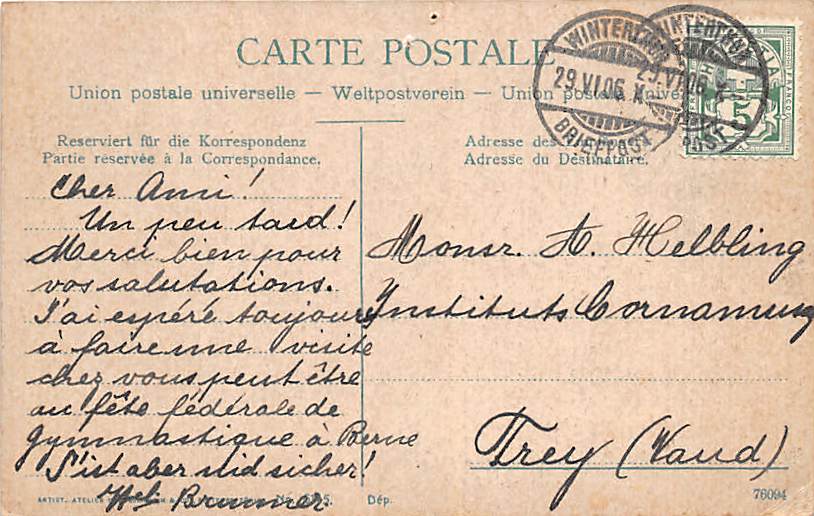 CARTE POSTALE
Union postale universelle – Weltpostverein – Union postale
WINTERTHUR
29.VI.06. X
BRIEFPOST
Reserviert für die Korrespondenz
Partie réservée à la Correspondance.
Adresse des
Adresse du Destinataire.
Cher Ami!
Un peu tard!
Merci bien pour
vos salutations.
J'ai espéré toujours
à faire une visite
chez vous peut être
au fête fédérale de
gymnastique à Berne
S'ist aber nid sicher!
Brunner
Monsr. A. Helbling
Instituts Cornamusaz
Trey (Vaud)
ARTIST. ATELIER
Dép.
76094